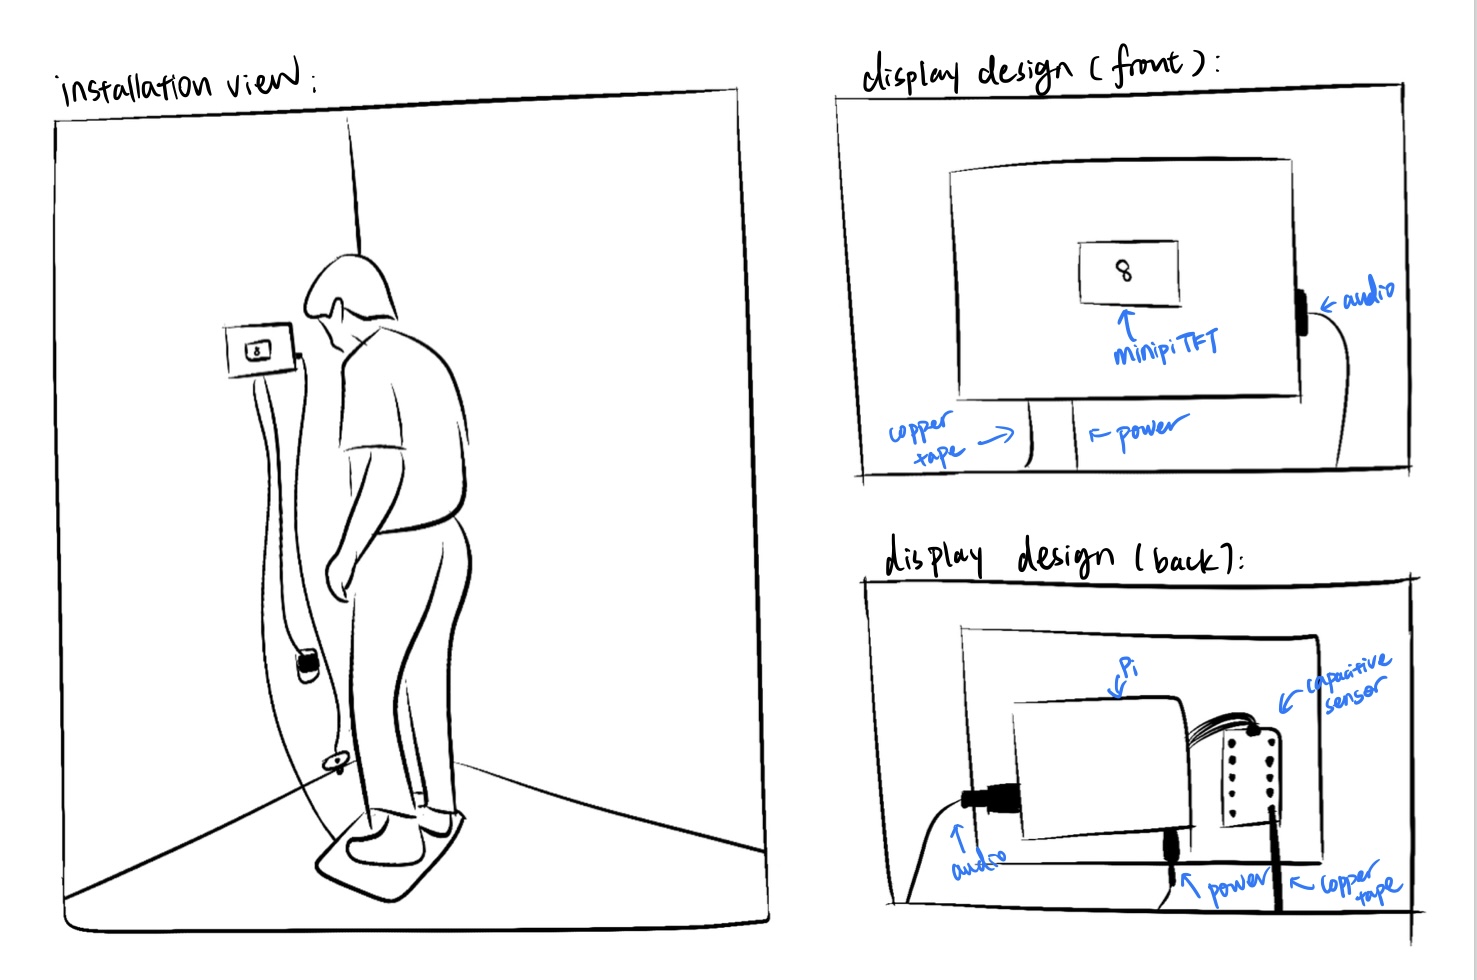 installation view:
8
display design (front):
8
audio
minipiTFT
copper
tape
power
display design (back):
Pi
capacitive
sensor
audio
power
copper
tape